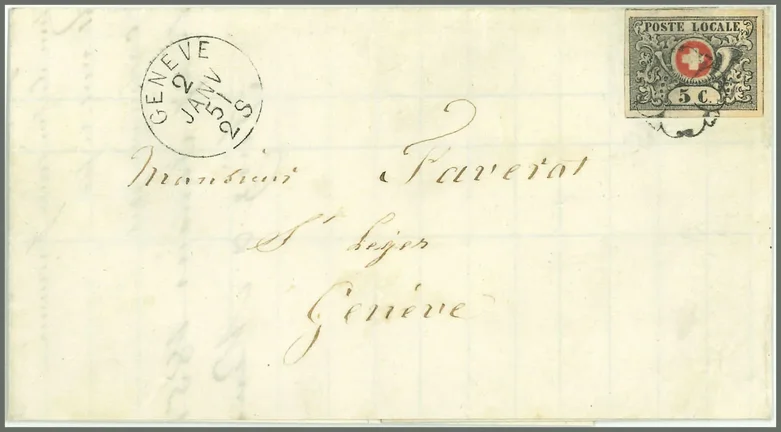 GENEVE
2
JANV
51
2 S
POSTE LOCALE
5 C.
Monsieur Faverot
St Leger
Genève